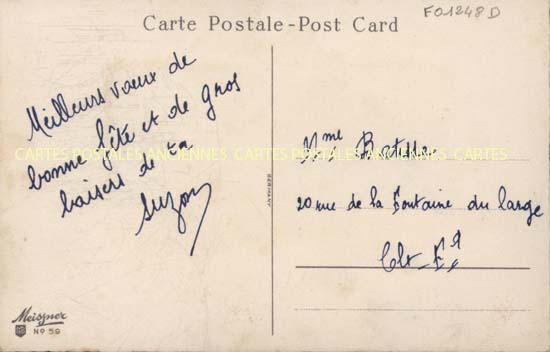 Carte Postale - Post Card
FO1248D
Meilleurs vœux de
bonne fête et de gros
baisers de ta
Suzon
Mme
20 rue de la Fontaine du large
Clt - Fd
CARTES POSTALES ANCIENNES CARTES POSTALES ANCIENNES CARTES POSTALES ANCIENNES
GERMANY
Meissner
No 59